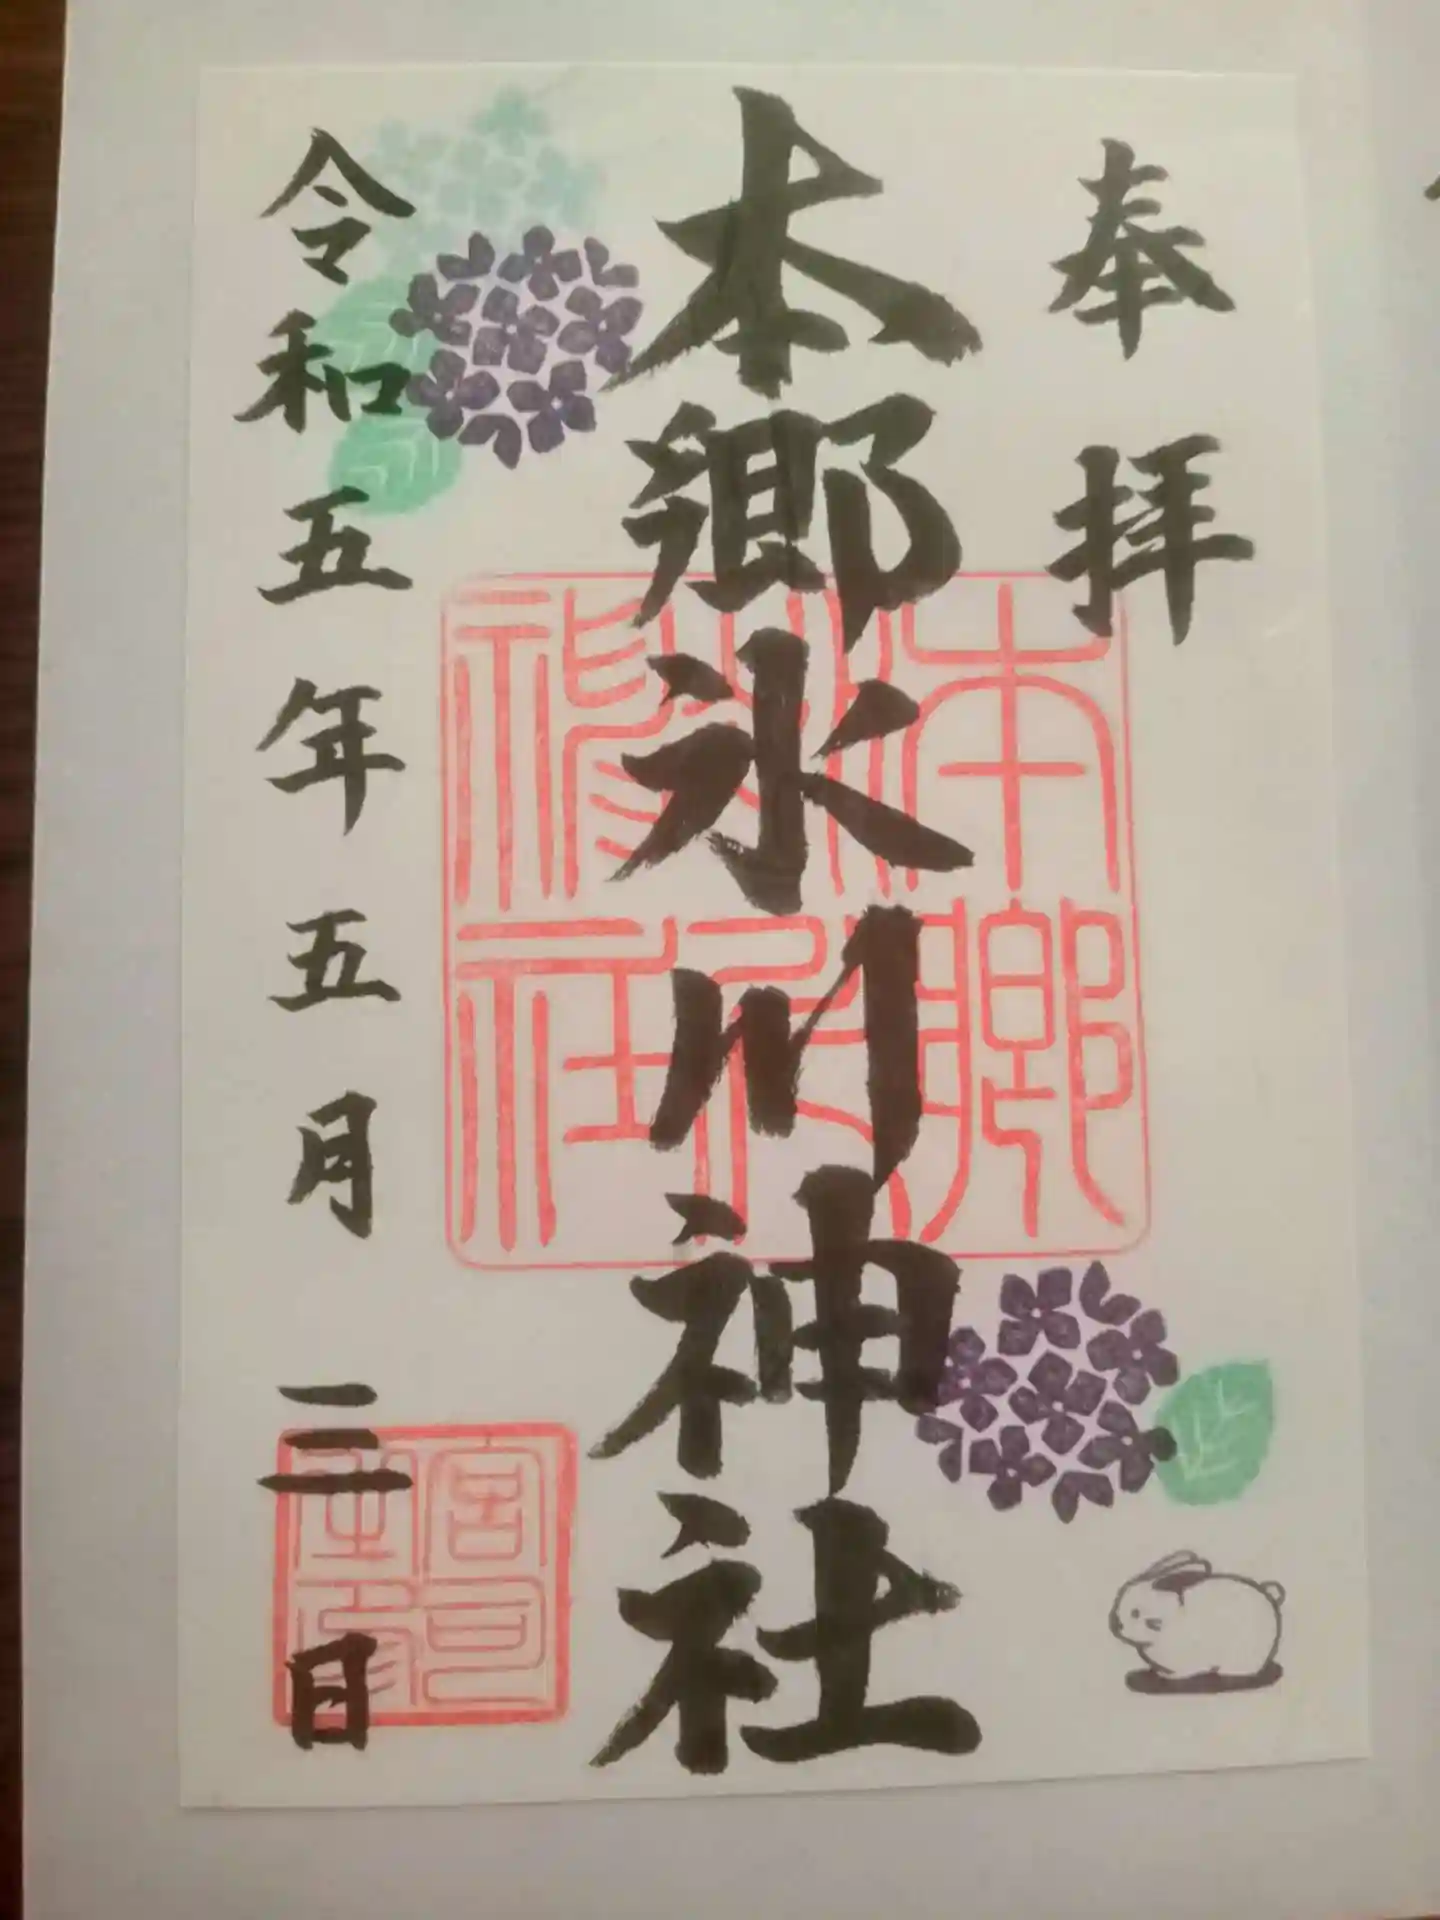 奉拝
本郷氷川神社
令和五年五月三日
本郷
氷川
神社
宮司